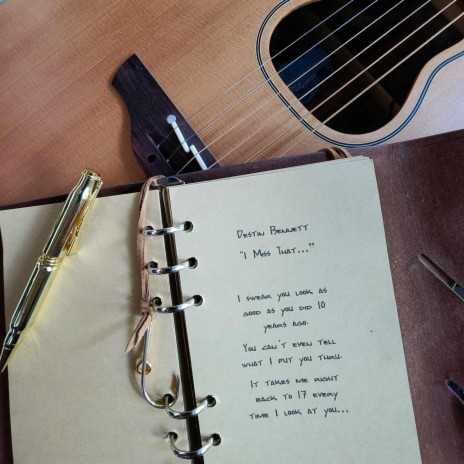 Destin Bennett
"I Miss That..."
I swear you look as
good as you did 10
years ago.
You can't even tell
what I put you thru.
It takes me right
back to 17 every
time I look at you...